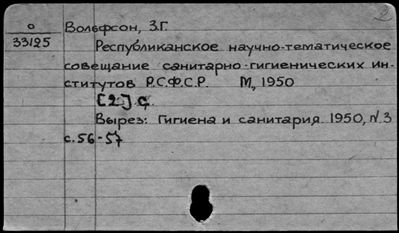 о
33125
Вольфсон, З.Г.
Республиканское научно-тематическое
совещание санитарно-гигиенических ин-
ститутов Р.С.Ф.С.Р. М., 1950
[2] с.
Вырез: Гигиена и санитария 1950, N.3
с.56-57